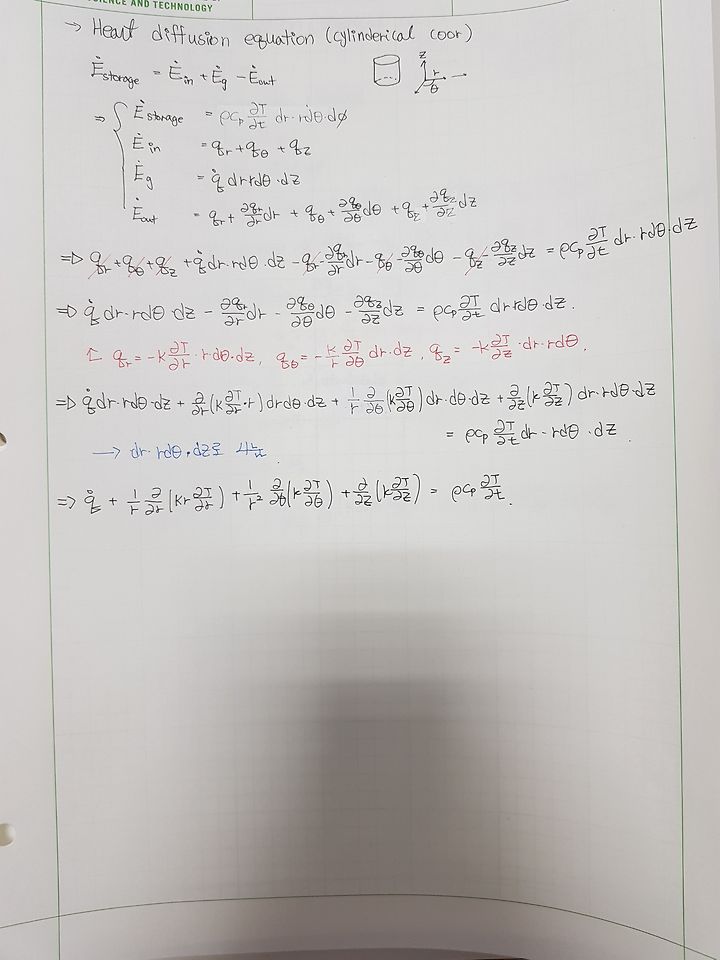 SCIENCE AND TECHNOLOGY
→ Heart diffusion equation (cylinderical coor)
Ėstorage = Ėin + Ėg - Ėout
z r θ
⇒ { Ėstorage = ρcp ∂T/∂t dr·rdθ·dϕ
Ėin = qr + qθ + qz
Ėg = q̇ dr rdθ·dz
Ėout = qr + ∂qr/∂r dr + qθ + ∂qθ/∂θ dθ + qz + ∂qz/∂z dz
⇒ qr + qθ + qz + q̇ dr·rdθ·dz - qr - ∂qr/∂r dr - qθ - ∂qθ/∂θ dθ - qz - ∂qz/∂z dz = ρcp ∂T/∂t dr·rdθ·dz
⇒ q̇ dr·rdθ·dz - ∂qr/∂r dr - ∂qθ/∂θ dθ - ∂qz/∂z dz = ρcp ∂T/∂t dr rdθ·dz.
↑ qr = -k ∂T/∂r · rdθ·dz, qθ = -k/r ∂T/∂θ dr·dz, qz = -k ∂T/∂z · dr·rdθ.
⇒ q̇ dr·rdθ·dz + ∂/∂r (k ∂T/∂r · r) dr dθ·dz + 1/r ∂/∂θ (k ∂T/∂θ) dr·dθ·dz + ∂/∂z (k ∂T/∂z) dr·rdθ·dz
= ρcp ∂T/∂t dr·rdθ·dz
→ dr·rdθ·dz로 나눔
⇒ q̇ + 1/r ∂/∂r (kr ∂T/∂r) + 1/r² ∂/∂θ (k ∂T/∂θ) + ∂/∂z (k ∂T/∂z) = ρcp ∂T/∂t.